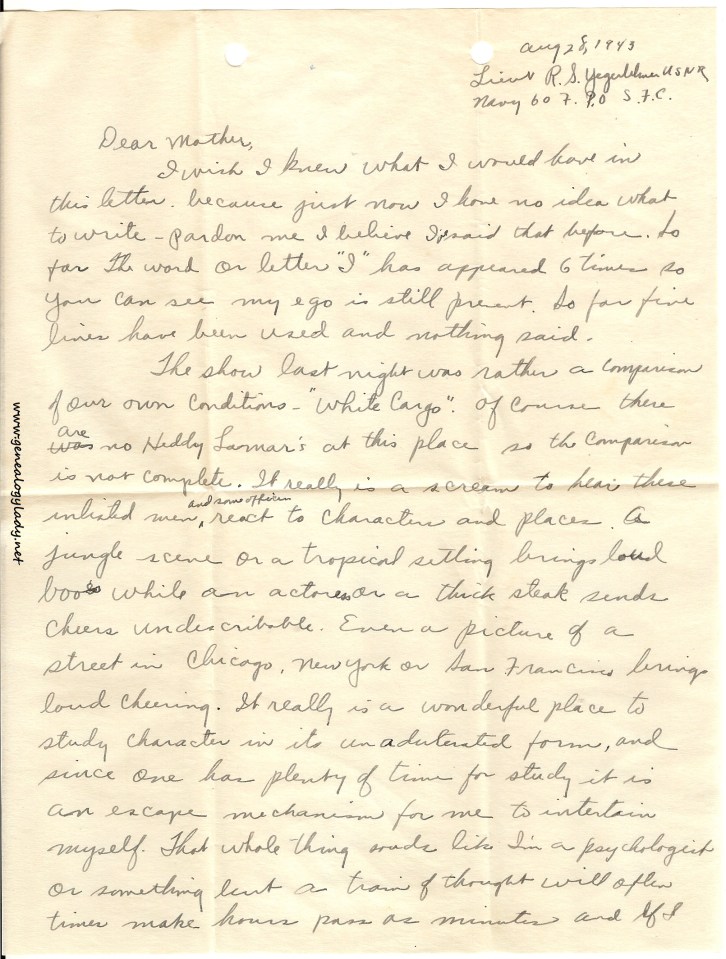 Aug 28, 1943
Lieut R. S. Yegerlehner USNR
Navy 60 F. P.O S.F.C.
Dear Mother,
I wish I knew what I would have in
this letter. because just now I have no idea what
to write - pardon me I believe I said that before. So
far The word or letter "I" has appeared 6 times so
you can see my ego is still present. So far five
lines have been used and nothing said.
The show last night was rather a comparison
of our own conditions - "White Cargo". Of course there
are
was no Heddy Lamar's at this place so the comparison
is not complete. It really is a scream to hear these
and some officers
inlisted men, react to characters and places. A
jungle scene or a tropical setting brings loud
boos while an actoress or a thick steak sends
cheers undescribable. Even a picture of a
street in Chicago, New York or San Francisco brings
loud cheering. It really is a wonderful place to
study character in its unadulterated form, and
since one has plenty of time for study it is
an escape mechanism for me to intertain
myself. That whole thing sounds like I'm a psychologist
or something but a train of thought will often
times make hours pass as minutes and if I
www.genealogylady.net